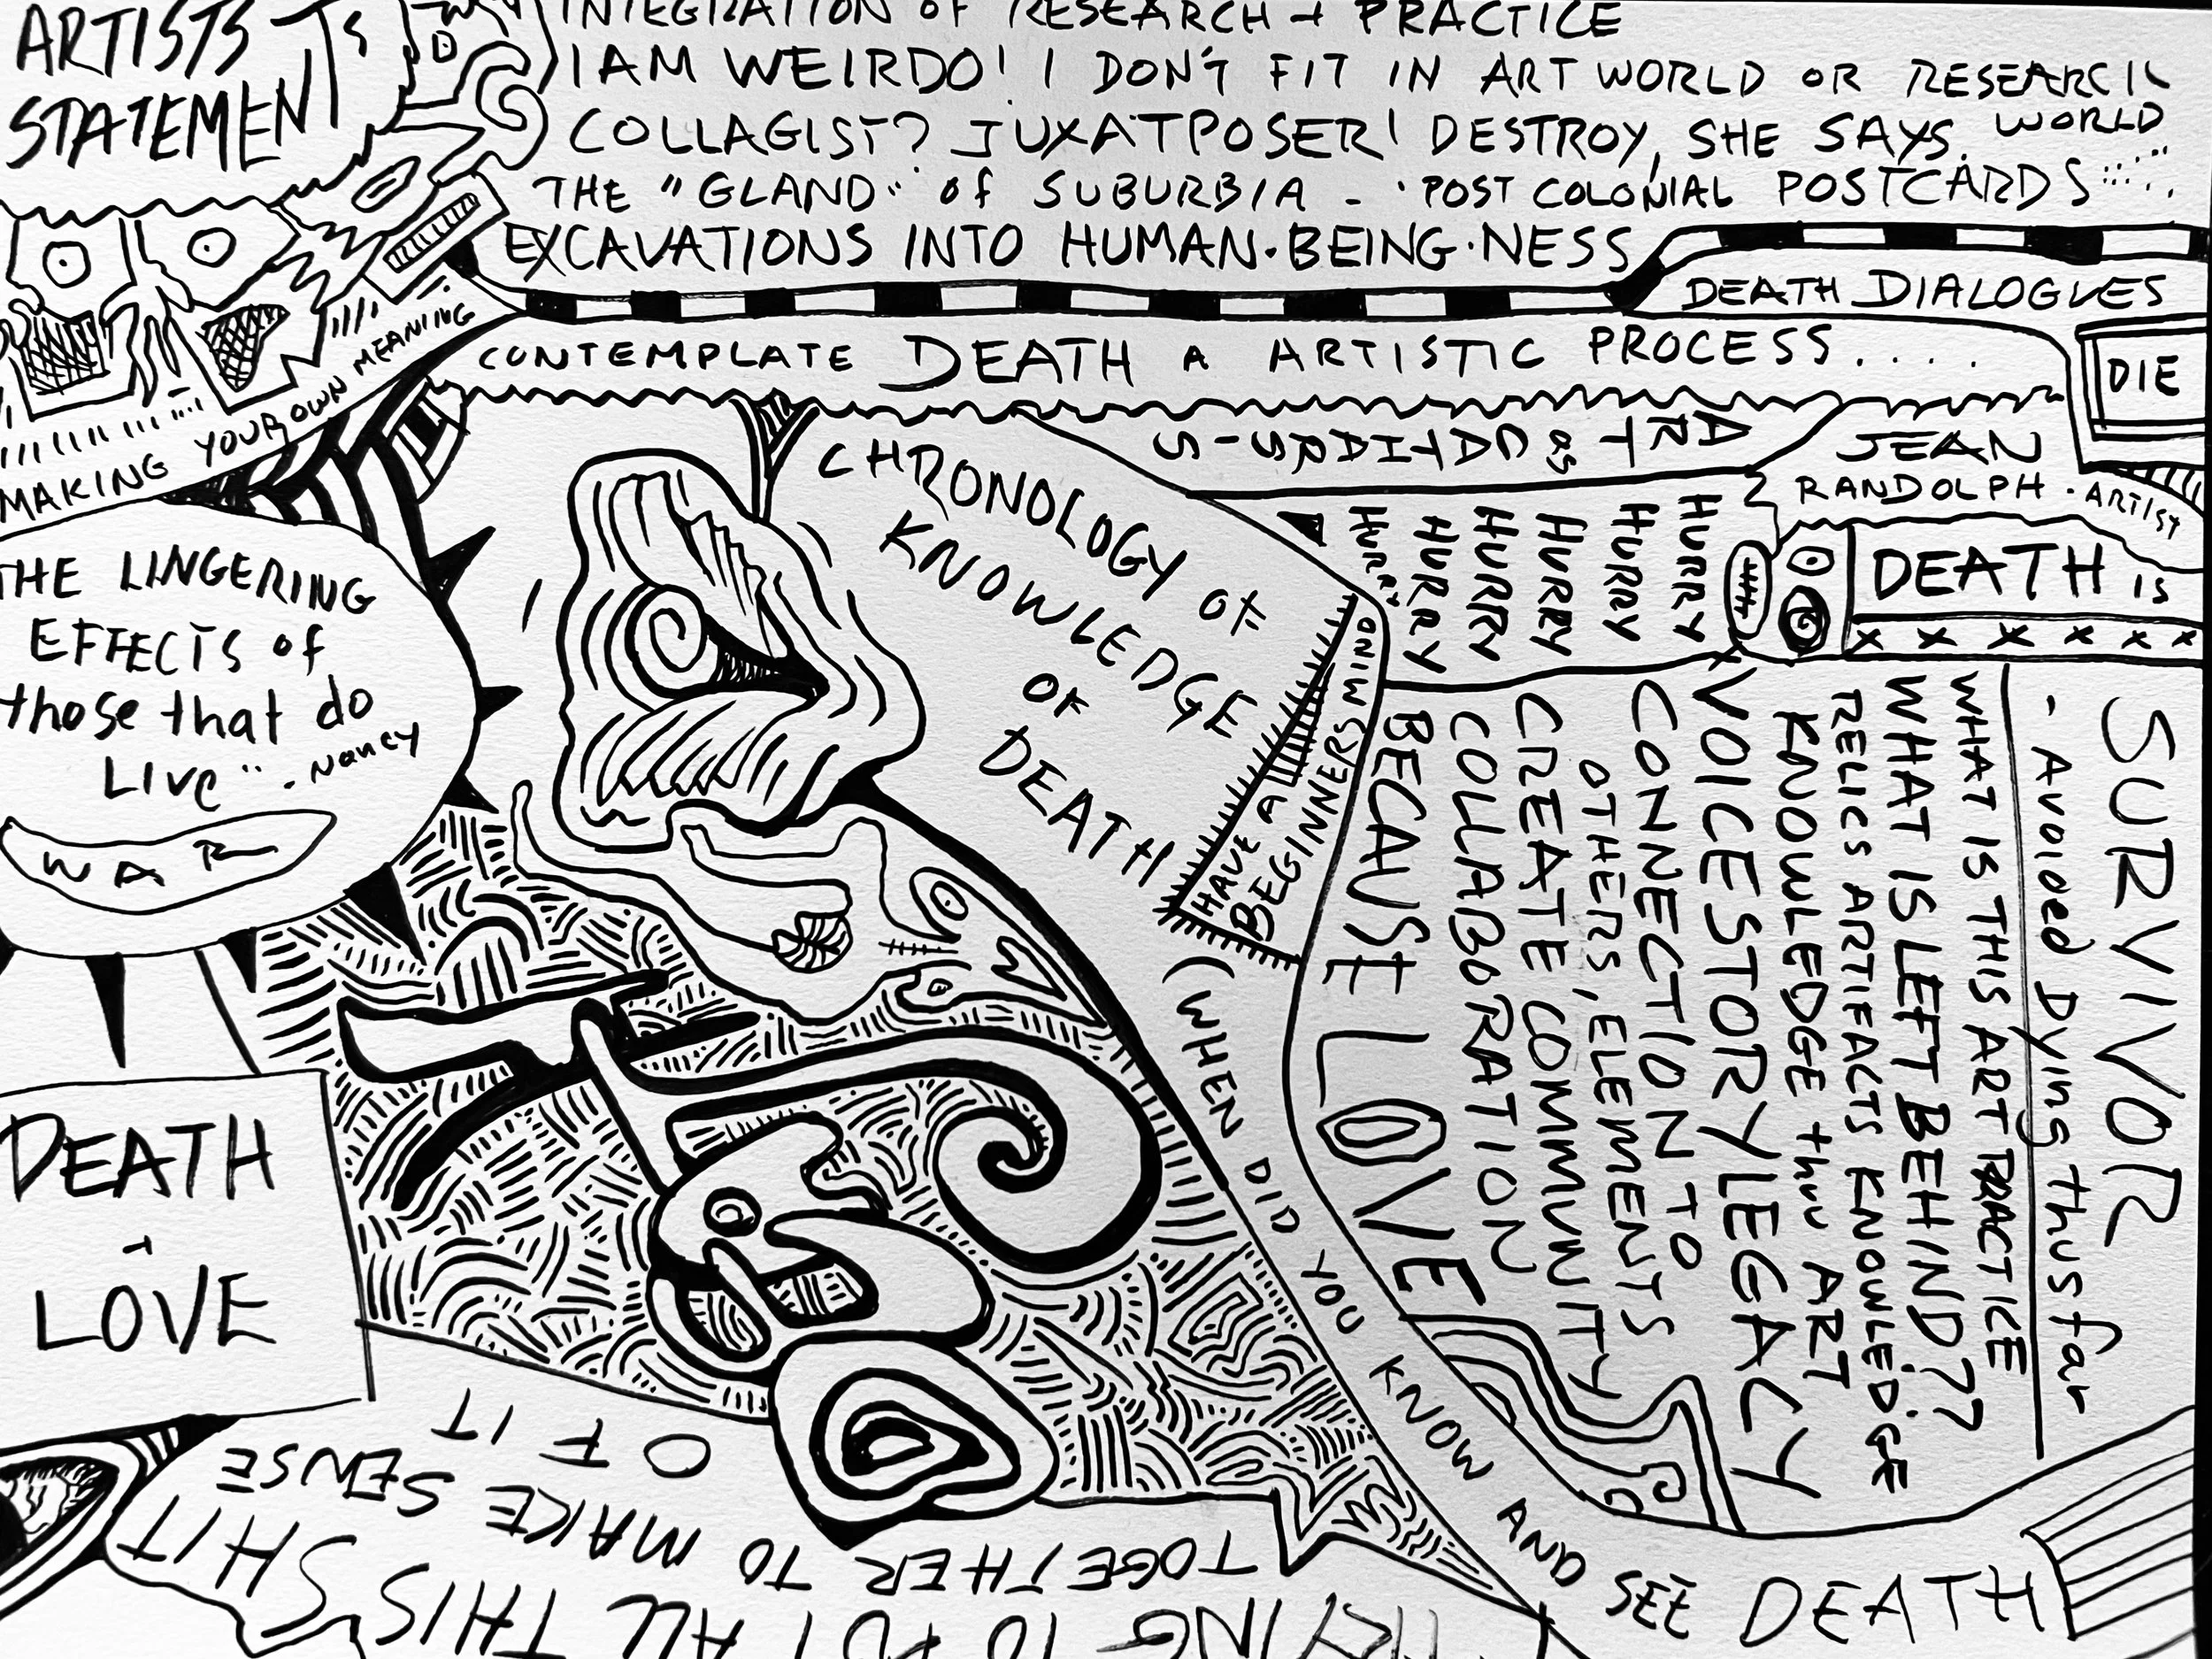 ARTISTS -
STATEMENTS
INTEGRATION OF RESEARCH + PRACTICE
I AM WEIRDO! I DON'T FIT IN ART WORLD OR RESEARCH
WORLD
COLLAGIST? JUXATPOSER! DESTROY, SHE SAYS.
THE "GLAND" of SUBURBIA - POST COLONIAL POSTCARDS
EXCAVATIONS INTO HUMAN·BEING·NESS
DEATH DIALOGUES
CONTEMPLATE DEATH A ARTISTIC PROCESS.....
DIE
MAKING YOUR OWN MEANING
ART as
JEAN
RANDOLPH - ARTIST
DEATH is
x x x x x x
CHRONOLOGY OF
KNOWLEDGE
OF
DEATH
HURRY
HURRY
HURRY
HURRY
HURRY
HURRY
THE LINGERING
EFFECTS of
those that do
Live" - Nancy
WAR
HAVE A
BEGINNERS
BEGINNERS MIND
SURVIVOR
- Avoided Dying thus far
WHAT IS THIS ART PRACTICE
WHAT IS LEFT BEHIND??
RELICS ARTIFACTS KNOWLEDGE
KNOWLEDGE thru ART
VOICE STORY LEGACY
CONNECTION TO
OTHERS, ELEMENTS
CREATE COMMUNITY
COLLABORATION
BECAUSE LOVE
(WHEN DID YOU KNOW AND SEE DEATH
DEATH
+
LOVE
TRYING TO PUT ALL THIS SHIT
TOGETHER TO MAKE SENSE
OF IT